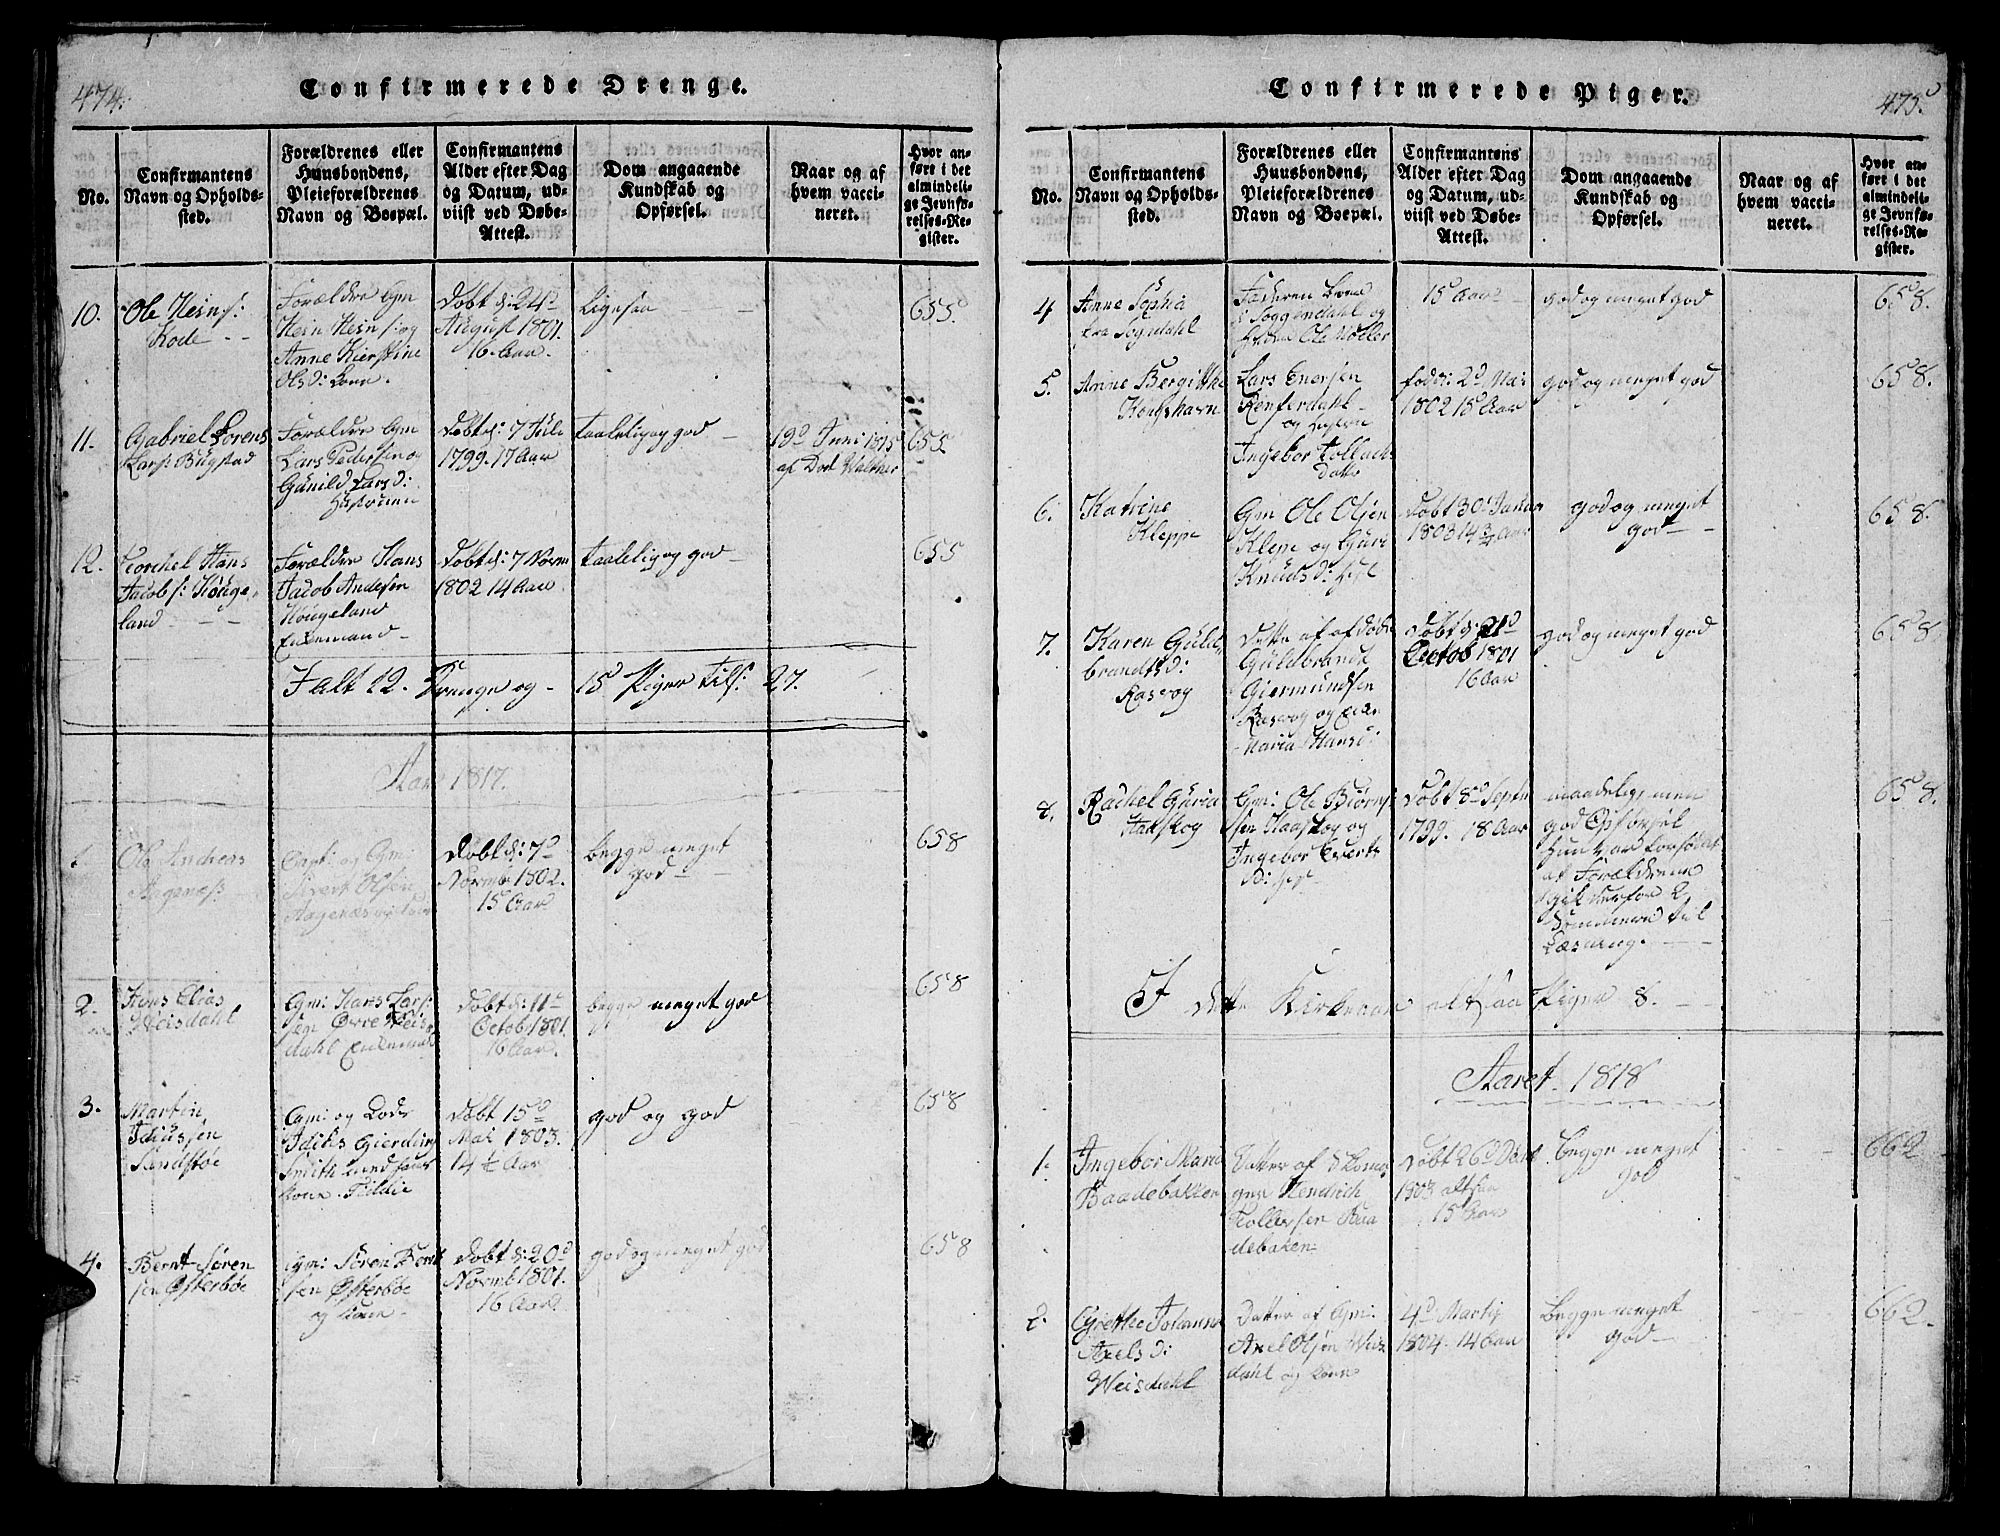 474.
Confirmerede Drenge.
No.
Confirmantens
Navn og Opholds-
sted.
Forældrenes eller
Huusbondens,
Pleieforældrenes
Navn og Boepæl.
Confirmantens
Alder efter Dag
og Datum, ud-
viist ved Døbe-
Attest.
Dom angaaende
Kundskab og
Opførsel.
Naar og af
hvem vacci-
neret.
Hvor an-
ført i det
almindeli-
ge Jevnfø-
relses-Re-
gister.
10.
Ole Heins:
Kode
Forældre Gm
Hein Heins: og
Anne Kierstine
Olsd: Kone.
Døbt d: 24d
August 1801.
16 Aar.
Ligesaa
655
11.
Gabriel Lorens
Lars: Bugstad
Forældre Gm
Lars Pedersen og
Gunild Larsd:
Døbt d: 7 Juli
1799. 17 Aar
taalelig og god
19d Juni 1815
af Doct Walther
655
12.
Torchel Hans
Jacobs: Houge-
land
Forældre Hans
Jacob Andersen
Hougeland
Enkemand
Døbt d: 7 Novm
1802 14 Aar
taalelig og god
655
I alt 12. Drenge og 15 Piger tils: 27.
Aar 1817.
1.
Ole Andreas
Aagenæs
og Gm:
Sivert Olsen
Aagenæs og Kone
Døbt d: 7d
Novmb 1802.
15 Aar
begge meget
god
658
2.
Hans Elias
Weisdahl
Gm: Hans Lars:
sen Øvre Weis
dahl Enkemand
Døbt d: 11d
Octob 1801.
16 Aar.
begge meget god
658
3.
Martin
Sandstøe
Gm: og Lods
Smith med
Kone
Døbt 15d
Mai 1803.
14 1/2 Aar
god og god
658
4.
Bernt Søren
sen Østerbøe
Gm: Søren Bernt
sen Østerbøe
og Kone
Døbt d: 20d
Novmb 1801.
16 Aar
god og meget god
658
475.
Confirmerede Piger.
No.
Confirmantens
Navn og Opholds-
sted.
Forældrenes eller
Huusbondens,
Pleieforældrenes
Navn og Boepæl.
Confirmantens
Alder efter Dag
og Datum, ud-
viist ved Døbe-
Attest.
Dom angaaende
Kundskab og
Opførsel.
Naar og af
hvem vacci-
neret.
Hvor an-
ført i det
almindeli-
ge Jevnfø-
relses-Re-
gister.
4
Anne Sophia
fra Sogndahl
i Soggendahl og
Ole Møller
15 Aar
god og meget god
658.
5.
Anne Bergitthe
Kongshavn
Lars Enersen
og
Ingebor
Datter
fød d: 2d Mai
1802 15 Aar
god og meget god
658.
6.
Katrine
Kleppe
Gm Ole Olsen
Klepe og Guri
Knudsd:
Døbt 30 Janua
1803 14 3/4 Aar
god og meget
god
658.
7.
Karen Guld-
brandtsd:
Rasvog
Datter af afdøde
Guldbrandt
Giermundsen
Rasvog og Enke
Maria Hansd:
Døbt d: 21d
Octob 1801
16 Aar
god og meget god
658
8.
Rachel Guria
Haaskog
Gm: Ole Biørn
sen Haaskog og
Ingebor Everts
D:
Døbt 8d Septr
1799. 18 Aar
maadelig, men
god Opførsel
hun var forsømt
af Forældrene
gik derfor 2
Sommere til
Læsning.
658.
I dette Kirkeaar altsaa Piger 8.
Aaret 1818
1.
Ingebor Maria
Baadebakken
Datter af Skoma
ger Hendrich
Tollefsen Baa
debaken
Døbt 26d
1803 altsaa
15 Aar
begge meget
god
662
2.
Grethe Johanne
Axels D:
Weisdahl
Datter af Gm:
Axel Olsen Weis
dahl og Kone
4d Martij
1804. 14 Aar
begge meget
god
662.